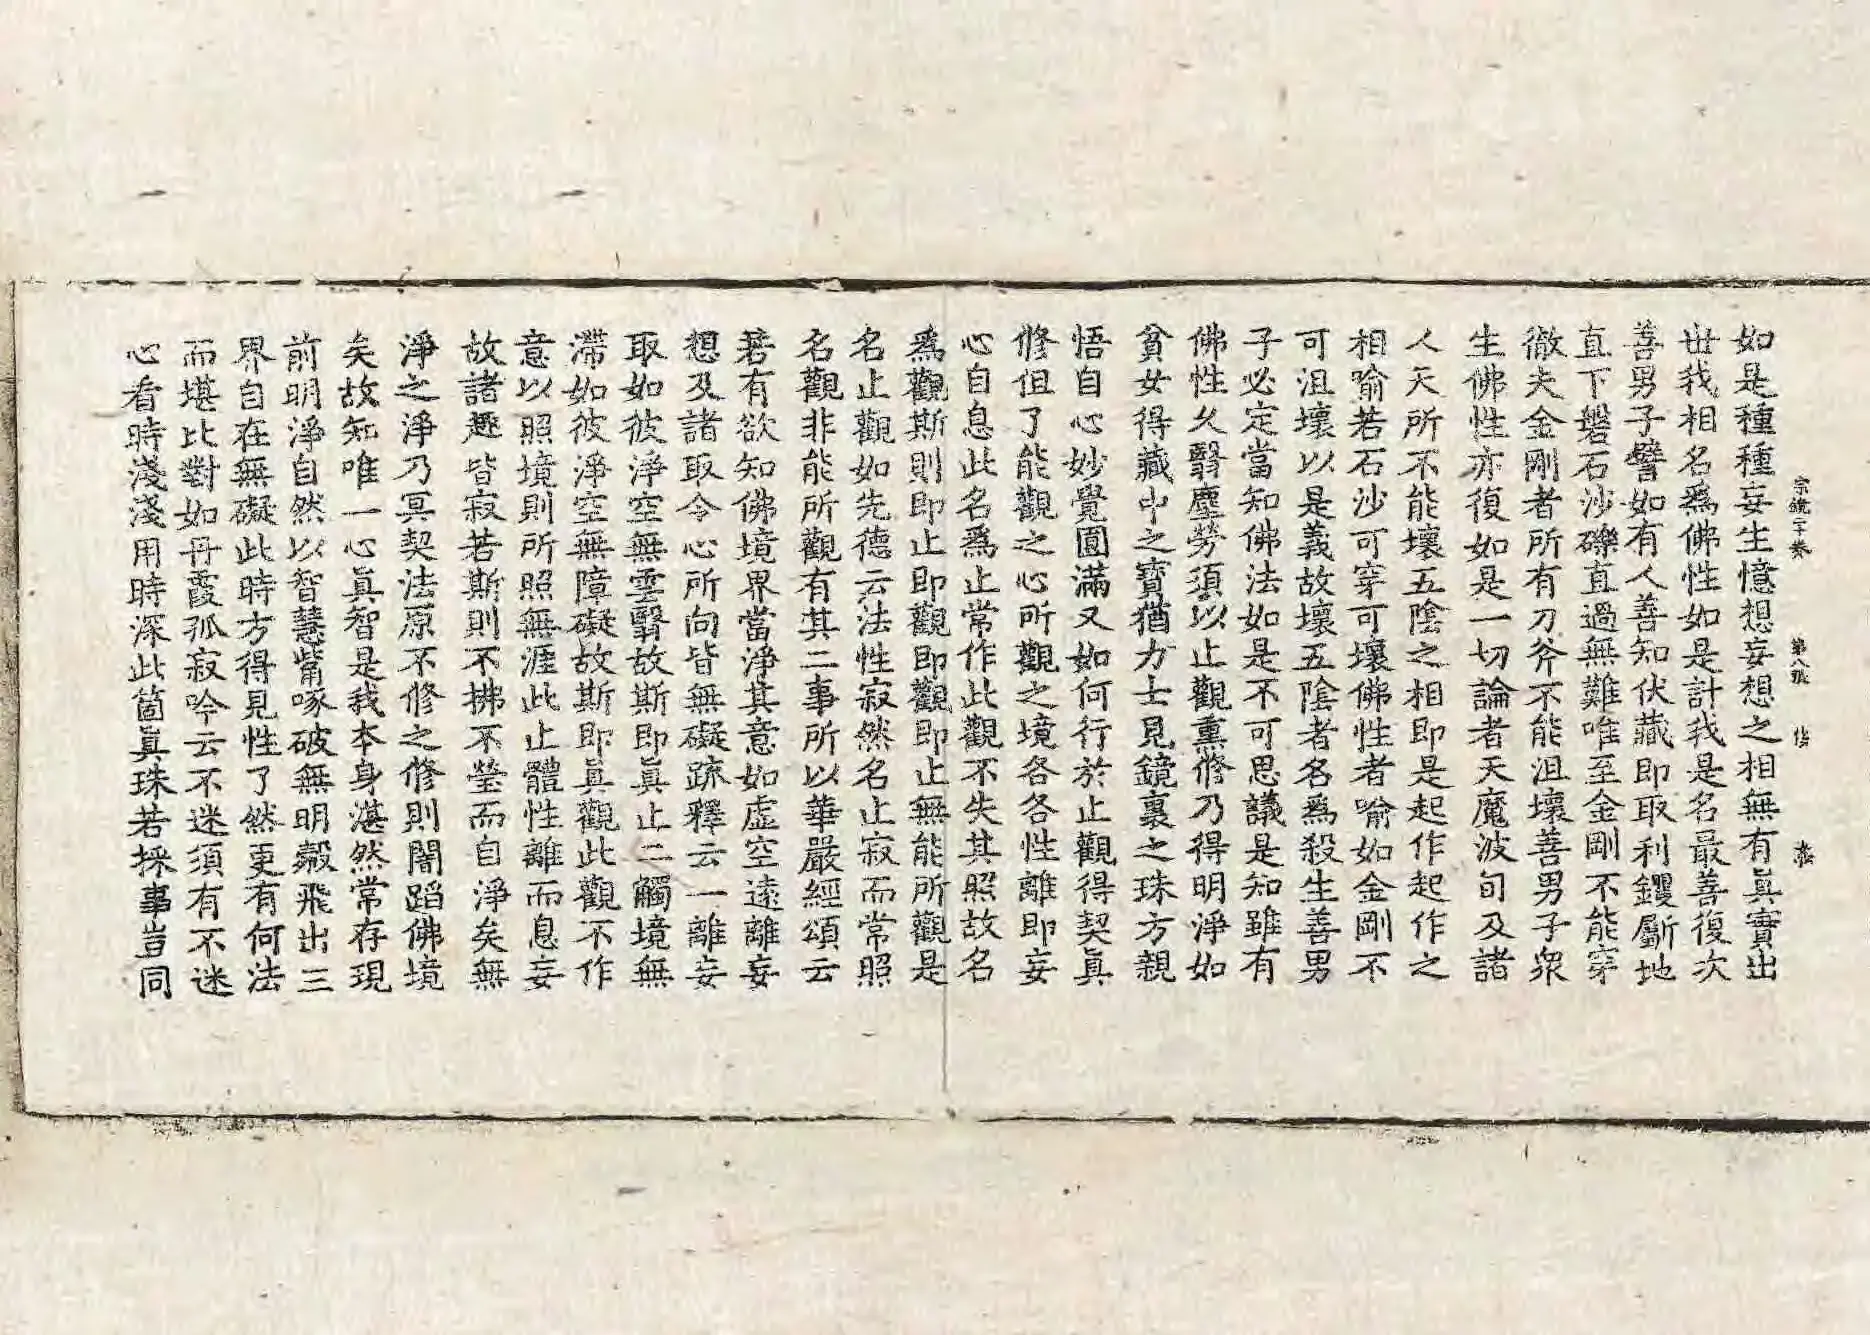 宗鏡二十卷 第八張
如是種種妄生憶想妄想之相無有眞實出
世我相名爲佛性如是計我是名最善復次
善男子譬如有人善知伏藏即取利钁斸地
直下磐石沙礫直過無難唯至金剛不能穿
徹夫金剛者所有刀斧不能沮壞善男子衆
生佛性亦復如是一切論者天魔波旬及諸
人天所不能壞五陰之相即是起作起作之
相喻若石沙可穿可壞佛性者喻如金剛不
可沮壞以是義故壞五陰者名爲殺生善男
子必定當知佛法如是不可思議是知雖有
佛性久翳塵勞須以止觀熏修乃得明淨如
貧女得藏中之寶猶力士見鏡裏之珠方親
悟自心妙覺圓滿又如何行於止觀得契眞
修但了能觀之心所觀之境各各性離即妄
心自息此名爲止常作此觀不失其照故名
爲觀斯則即止即觀即觀即止無能所觀是
名止觀如先德云法性寂然名止寂而常照
名觀非能所觀有其二事所以華嚴經頌云
若有欲知佛境界當淨其意如虛空遠離妄
想及諸取令心所向皆無礙䟽釋云一離妄
取如彼淨空無雲翳故斯即眞止二觸境無
滯如彼淨空無障礙故斯即眞觀此觀不作
意以照境則所照無涯此止體性離而息妄
故諸趣皆寂若斯則不拂不瑩而自淨矣無
淨之淨乃冥契法原不修之修則闇蹈佛境
矣故知唯一心眞智是我本身湛然常存現
前明淨自然以智慧觜啄破無明㲉飛出三
界自在無礙此時方得見性了然更有何法
而堪比對如丹霞孤寂吟云不迷須有不迷
心看時淺淺用時深此箇眞珠若採事豈同